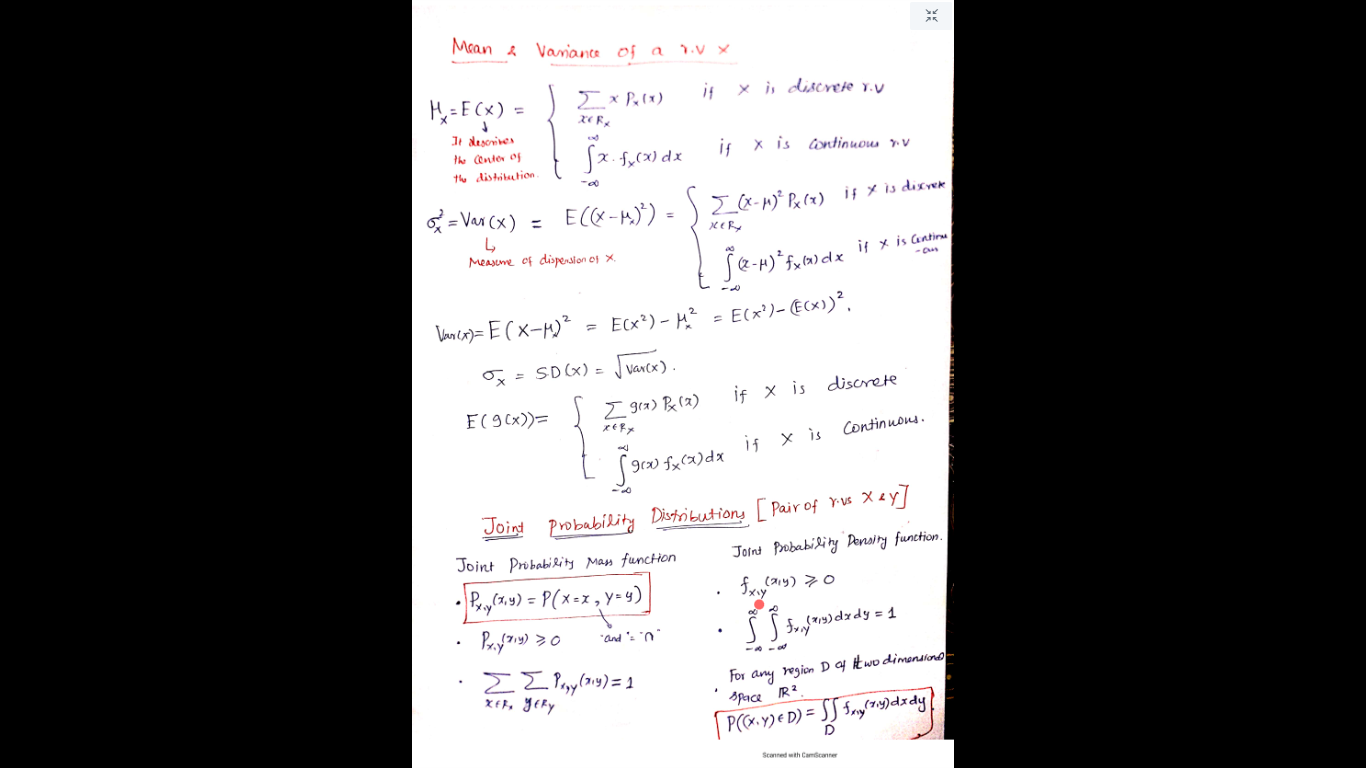 Mean & Variance of a r.v X
μ_X = E(X) = { Σ_{x∈R_X} x P_X(x) if X is discrete r.v
∫_{-∞}^{∞} x · f_X(x) dx if X is continuous r.v
It describes
the center of
the distribution.
σ_X² = Var(X) = E((X-μ_X)²) = { Σ_{x∈R_X} (x-μ)² P_X(x) if X is discrete
∫_{-∞}^{∞} (x-μ)² f_X(x) dx if X is Continu
-ous
Measure of dispersion of X.
Var(X) = E(X-μ_X)² = E(X²) - μ_X² = E(X²) - (E(X))².
σ_X = SD(X) = √Var(X).
E(g(X)) = { Σ_{x∈R_X} g(x) P_X(x) if X is discrete
∫_{-∞}^{∞} g(x) f_X(x) dx if X is Continuous.
Joint Probability Distributions [Pair of r.vs X & Y]
Joint Probability Mass function
• P_{X,Y}(x,y) = P(X=x, Y=y)
"and" = "∩"
• P_{X,Y}(x,y) ≥ 0
• Σ_{x∈R_X} Σ_{y∈R_Y} P_{X,Y}(x,y) = 1
Joint Probability Density function.
• f_{X,Y}(x,y) ≥ 0
• ∫_{-∞}^{∞} ∫_{-∞}^{∞} f_{X,Y}(x,y) dx dy = 1
• For any region D of two dimensional
space ℝ².
P((X,Y)∈D) = ∬_D f_{X,Y}(x,y) dx dy
Scanned with CamScanner